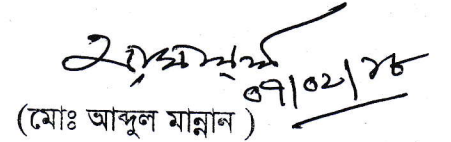 ০৭/০২/১৮
(মোঃ আব্দুল মান্নান )